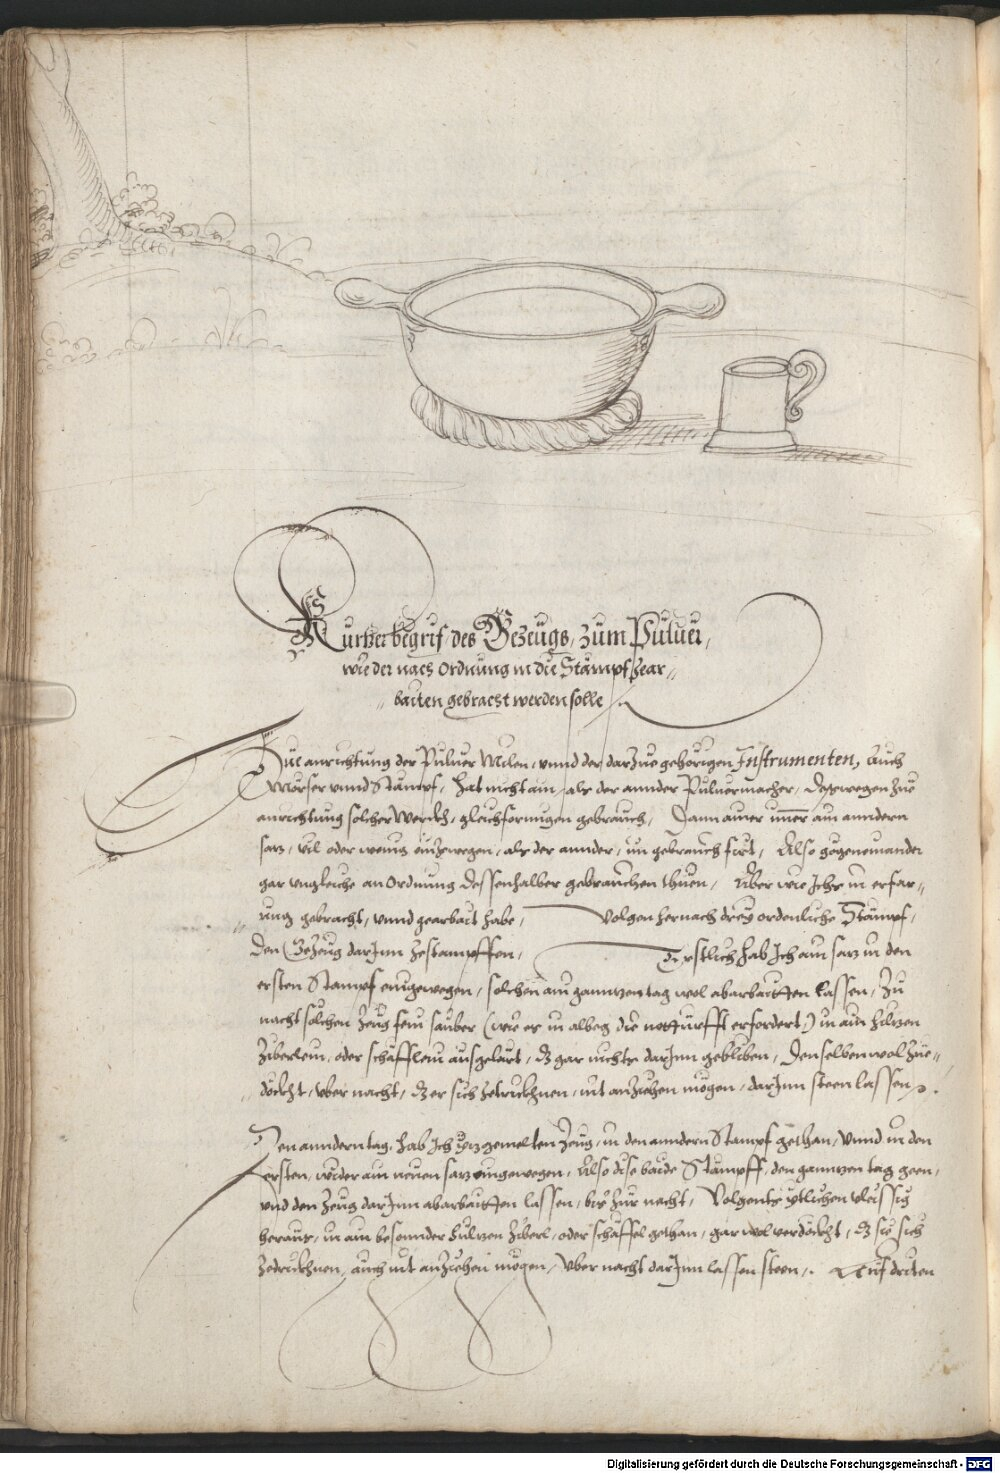 Kurtzer begrif des Gezeugs, zum Puluer,
wie der nach ordnung in die Stämpf zear„
„ baiten gebracht werden solle
Die anrichtung der Puluer Milen, vnnd der darzue gehörigen Instrumenten, Auch
Mörser vnnd Stämpf, hat nicht ain, als der annder Puluermacher, desswegen zue
anrichtung solcher Werckh, gleichformigen gebrauch, Dann ainer immer ain anndern
sarz, vil oder wenig einzewegen, als der annder, im gebrauch fürt, Also gegeneinander
gar vngleiche an Ordnung dessenhalber gebrauchen thuen, Aber wie Ichs in erfar„
„ung gebracht, vnnd gearbait habe, Volgen hernach drey ordenliche Stämpf,
den Gezeug darInn zestampffen, Erstlich hab Ich ain sarz in den
ersten Stampf eingewegen, solchen ain ganntzen tag wol abarbaitten lassen, Zu
nacht solchen Zeug fein sauber (wie er in albeg die notturfft erfordert) in ain hiltzen
Ziberlein, oder schäfflein ausgelärt, dz gar nichts darInn gebliben, denselben wol zue„
„deckht, vber nacht, dz er sich zetrückhnen, nit anziehen mögen, darInn steen lassen.
Den anndern tag, hab Ich yezgemelten Zeug, in den anndern Stampf gethan, Vnnd in den
ersten, wider ain neuen sarz eingewegen, Also dise baide Stämpff, den ganntzen tag geen,
vnd den Zeug darInn abarbaitten lassen, bis zur nacht, Volgents ytlichen vleissig
heraus, in ain besonnder hültzen Ziberl, oder schäffel gethan, gar wol verdeckht, dz sie sich
zedrückhnen, auch nit anziehen mögen, Vber nacht darInn lassen steen. Auf driten
Digitalisierung gefördert durch die Deutsche Forschungsgemeinschaft - DFG